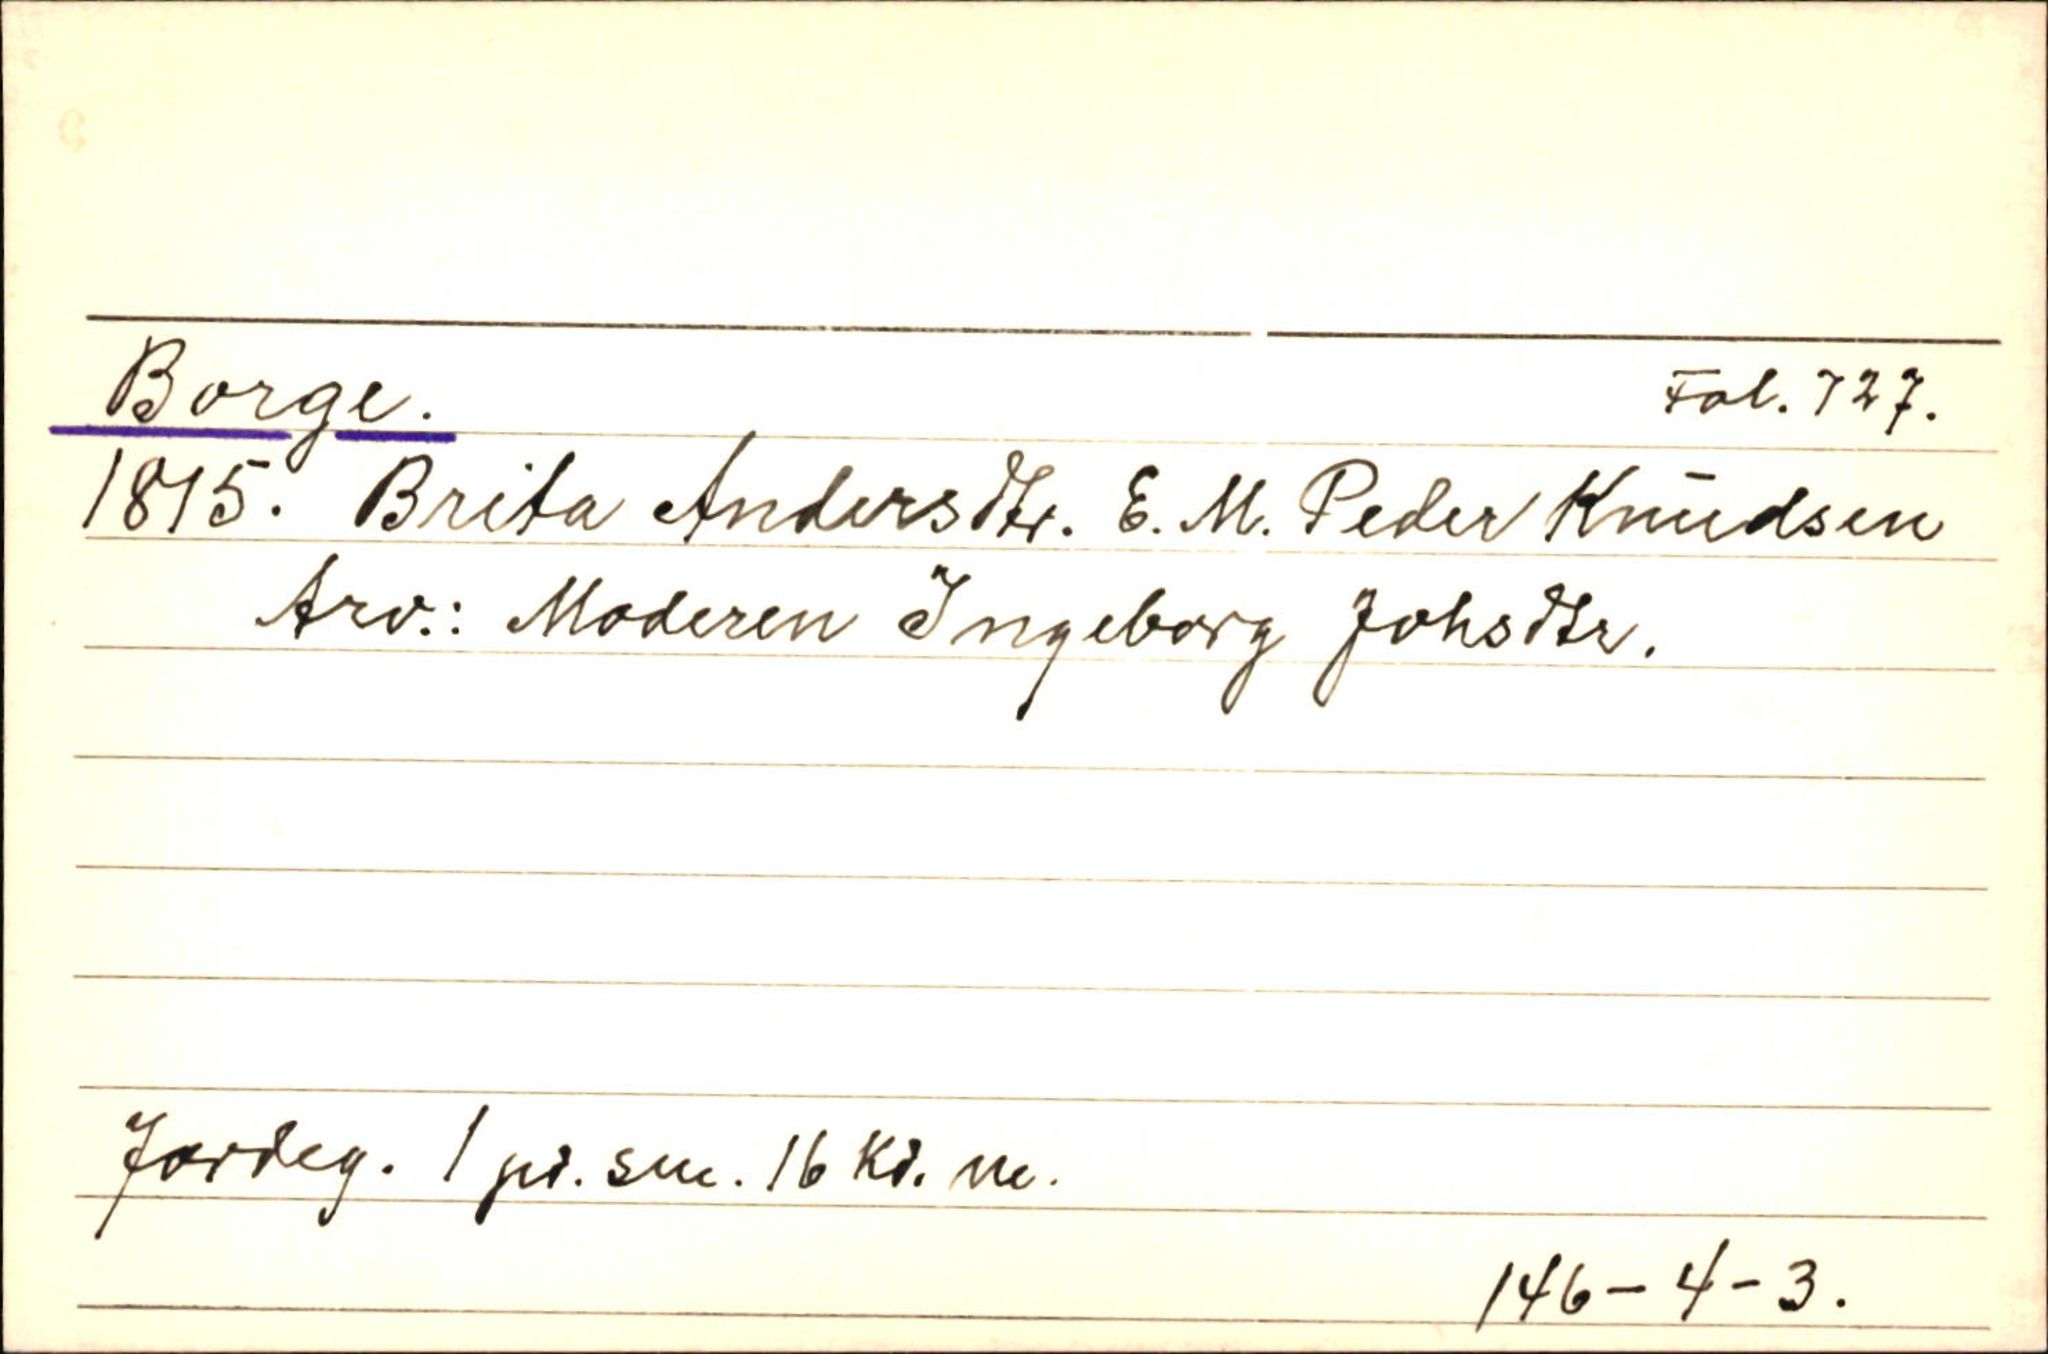 Borge. Fol. 727.
1815. Brita Andersdtr. E. M. Peder Knudsen
Arv.: Moderen Ingeborg Johsdtr.
Jordeg. 1 pd. sm. 16 Kd. m.
146-4-3.